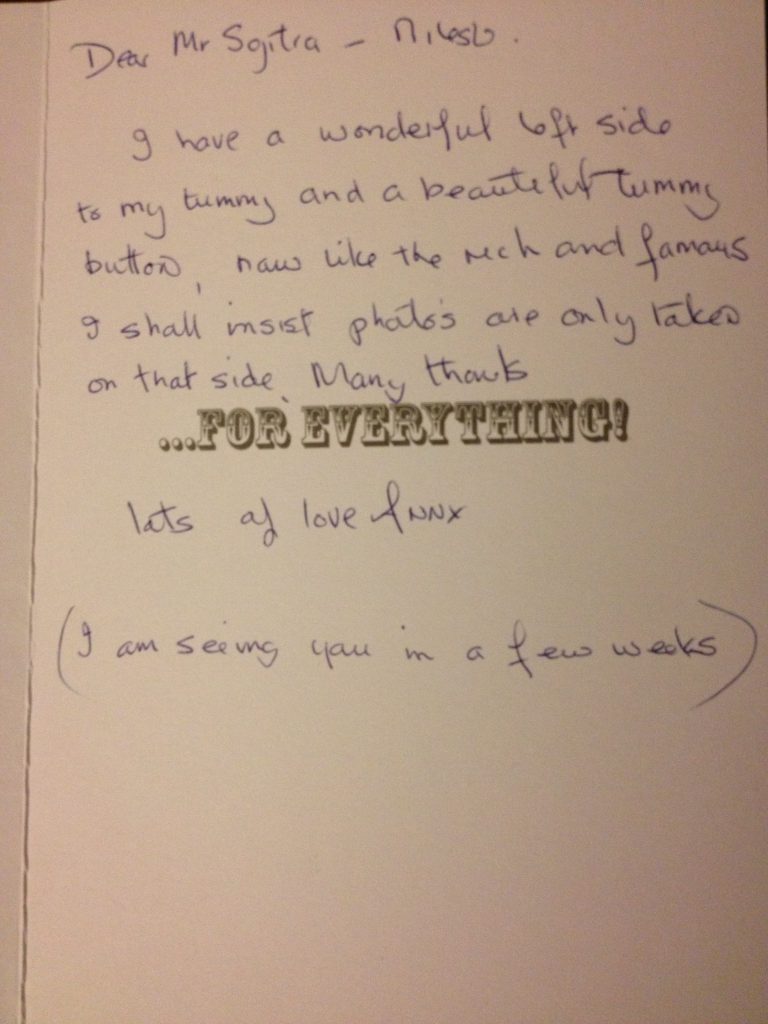 Dear Mr Sojitra - Nilesh.
I have a wonderful left side
to my tummy and a beautiful tummy
button, now like the rich and famous
I shall insist photo's are only taken
on that side. Many thanks
...FOR EVERYTHING!
lots of love Ann x
(I am seeing you in a few weeks)